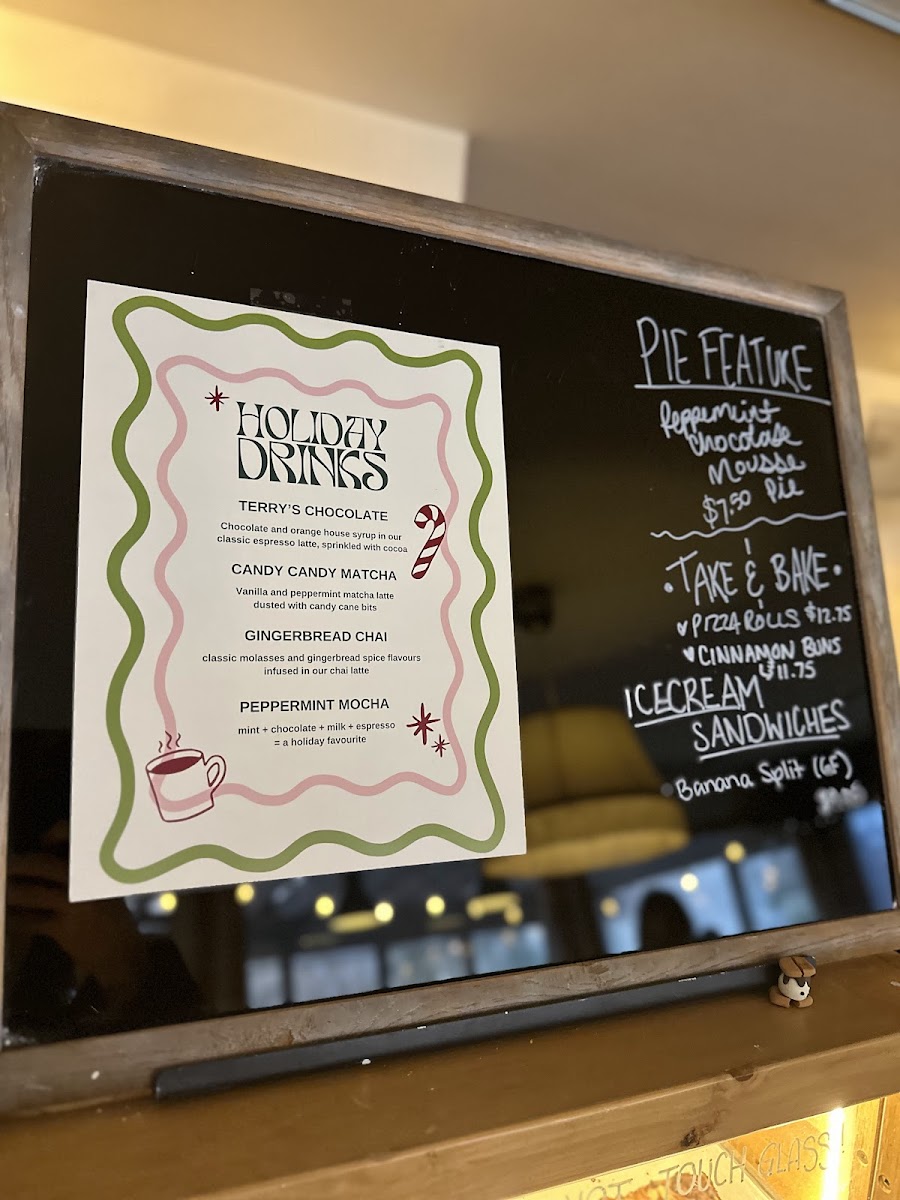 HOLIDAY
DRINKS
TERRY'S CHOCOLATE
Chocolate and orange house syrup in our
classic espresso latte, sprinkled with cocoa
CANDY CANDY MATCHA
Vanilla and peppermint matcha latte
dusted with candy cane bits
GINGERBREAD CHAI
classic molasses and gingerbread spice flavours
infused in our chai latte
PEPPERMINT MOCHA
mint + chocolate + milk + espresso
= a holiday favourite
PIE FEATURE
Peppermint
Chocolate
Mousse
$7.50 Pie
•TAKE & BAKE•
♥ PIZZA ROLLS $12.75
♥ CINNAMON BUNS
$11.75
ICECREAM
SANDWICHES
Banana Split (GF)
TOUCH GLASS!